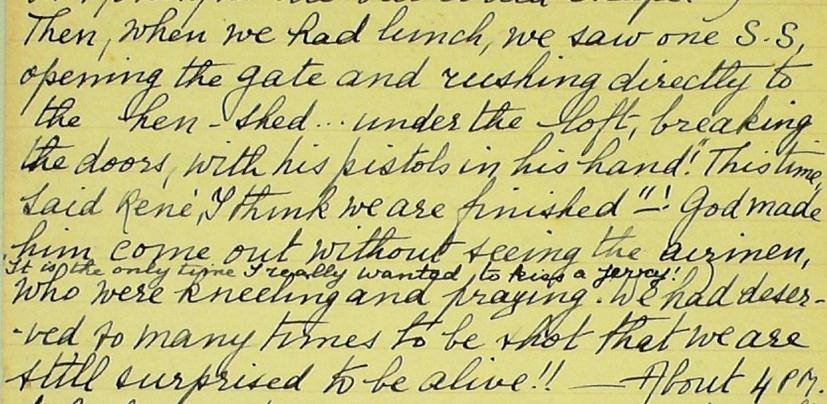 Then, when we had lunch, we saw one S.S,
opening the gate and rushing directly to
the hen-shed... under the loft, breaking
the doors, with his pistols in his hand! "This time,"
said René, "I think we are finished"! God made
him come out without seeing the airmen,
It is the only time I really wanted to kiss a jerry!
who were kneeling and praying. We had deser-
-ved so many times to be shot that we are
still surprised to be alive!! — About 4 PM.